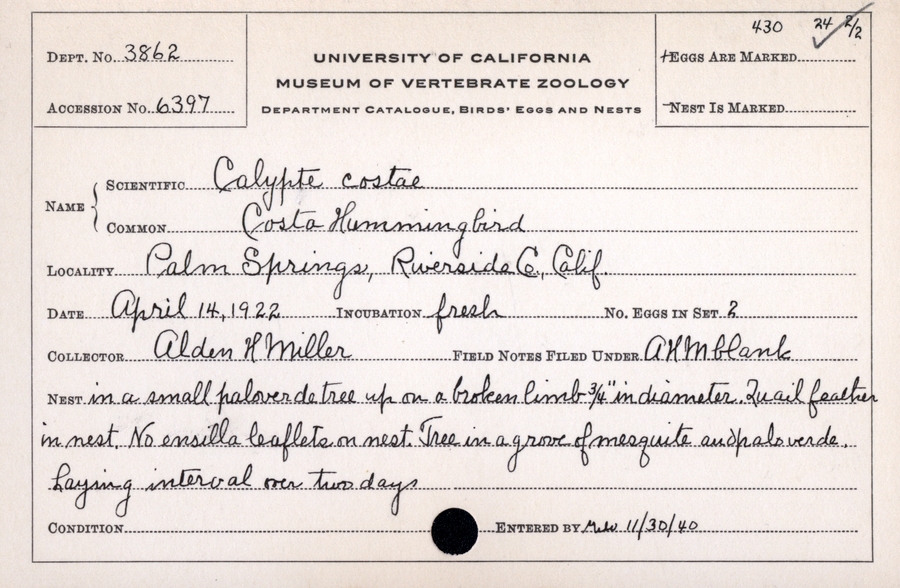 430 24 2/2
Dept. No. 3862
UNIVERSITY OF CALIFORNIA
Eggs Are Marked
MUSEUM OF VERTEBRATE ZOOLOGY
Accession No. 6397
Department Catalogue, Birds' Eggs and Nests
Nest Is Marked
Name
Scientific Calypte costae
Common Costa Hummingbird
Locality Palm Springs, Riverside Co., Calif.
Date April 14, 1922 Incubation fresh No. Eggs in Set 2
Collector Alden H Miller Field Notes Filed Under AHM blank
Nest in a small paloverde tree up on a broken limb 3/4" in diameter. Quail feather
in nest. No ensilla leaflets on nest. Tree in a grove of mesquite and palo verde.
Laying interval over two days
Condition Entered by 11/30/40